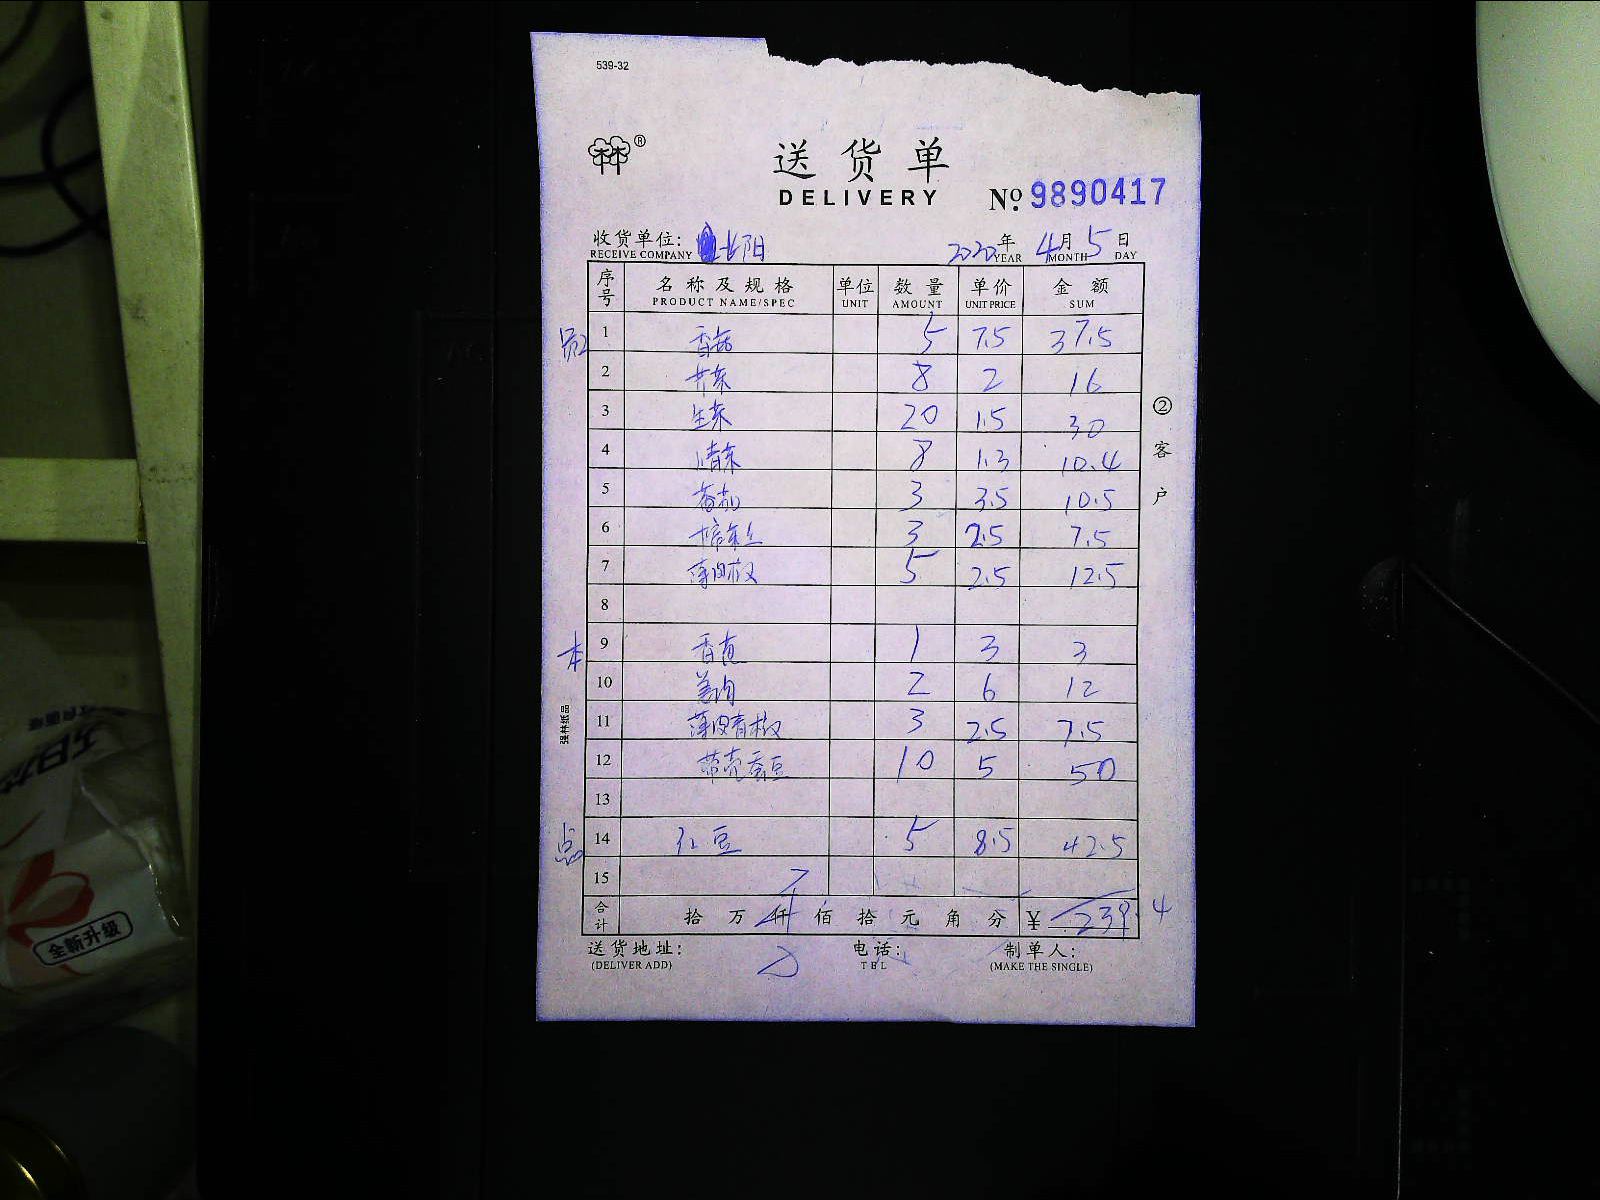 539-32
送货单
DELIVERY
№ 9890417
收货单位: 长阳 2020年 4月 5日
RECEIVE COMPANY YEAR MONTH DAY
序号 名称及规格 单位 数量 单价 金额
PRODUCT NAME/SPEC UNIT AMOUNT UNIT PRICE SUM
1 香菇 5 7.5 37.5
2 芹菜 8 2 16
3 生菜 20 1.5 30
4 青菜 8 1.3 10.4
5 番茄 3 3.5 10.5
6 榨菜丝 3 2.5 7.5
7 薄皮椒 5 2.5 12.5
8
本 9 香葱 1 3 3
10 2 6 12
11 薄皮青椒 3 2.5 7.5
12 带壳蚕豆 10 5 50
13
点 14 红豆 5 8.5 42.5
15
合计 拾 万 仟 佰 拾 元 角 分 ¥ 239.4
送货地址: 电话: 制单人:
(DELIVER ADD) TEL (MAKE THE SINGLE)
②客户
强林纸品
全新升级